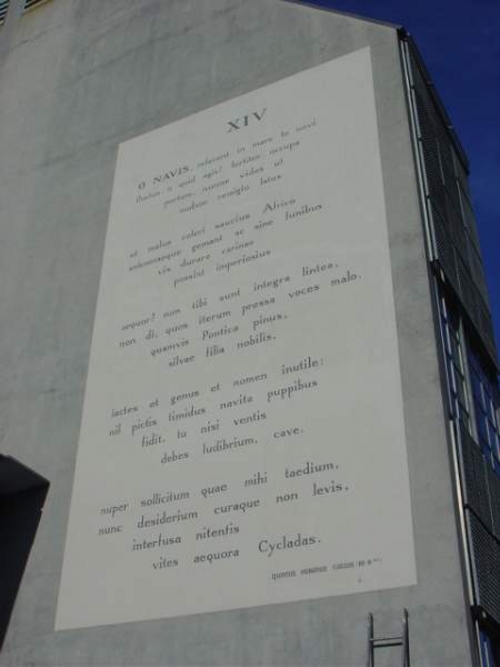 XIV
O NAVIS, referent in mare te novi
fluctus. o quid agis? fortiter occupa
portum. nonne vides ut
nudum remigio latus
et malus celeri saucius Africo
antennaeque gemant ac sine funibus
vix durare carinae
possint imperiosius
aequor? non tibi sunt integra lintea,
non di, quos iterum pressa voces malo.
quamvis Pontica pinus,
silvae filia nobilis,
iactes et genus et nomen inutile:
nil pictis timidus navita puppibus
fidit. tu nisi ventis
debes ludibrium, cave.
nuper sollicitum quae mihi taedium,
nunc desiderium curaque non levis,
interfusa nitentis
vites aequora Cycladas.
QUINTUS HORATIUS FLACCUS